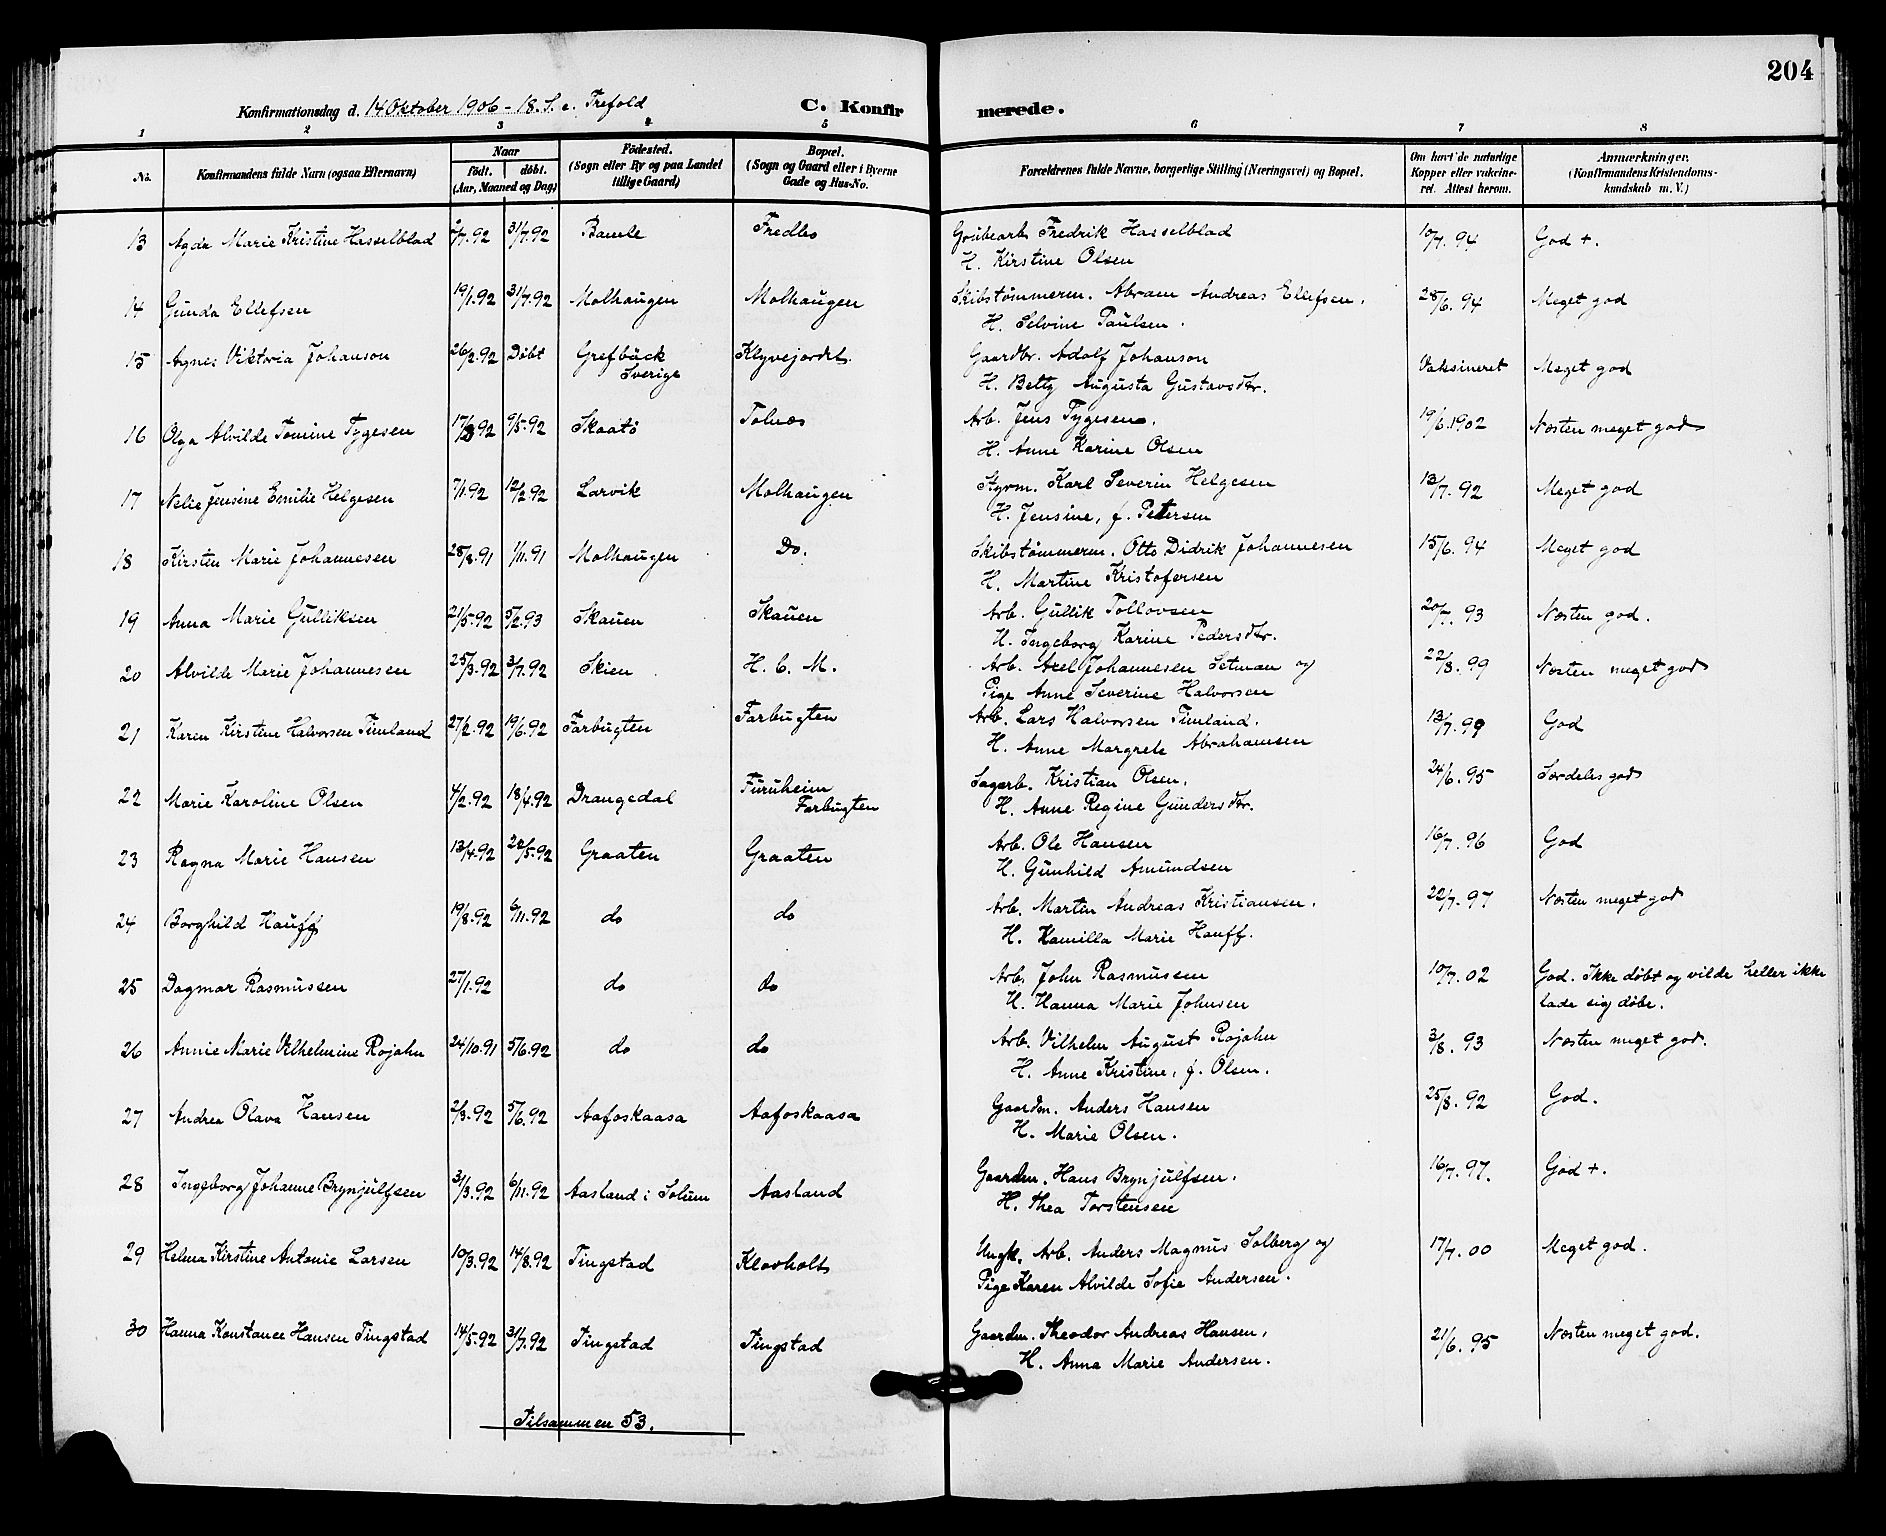 204
Konfirmationsdag d. 14 Oktober 1906 - 18. S. e. Trefold C. Konfirmerede.
1 2 3 4 5 6 7 8
No. Konfirmandens fulde Navn (ogsaa Efternavn) Naar født. døbt. (Aar, Maaned og Dag) Födested. (Sogn eller By og paa Landet tillige Gaard) Bopæl. (Sogn og Gaard eller i Byerne Gade og Hus-No. Forældrenes fulde Navne, borgerlige Stilling (Næringsvei) og Bopæl. Om havt de naturlige Kopper eller vakcineret. Attest herom. Anmærkninger. (Konfirmandens Kristendomskundskab m. V.)
13 Agda Marie Kristine Hasselblad /7.92 31/7.92 Bamle Fredbo Fredrik Hasselblad 10/7. 94 God +.
H. Kirstine Olsen
14 Gunda Ellefsen 19/1.92 31/7.92 Molhaugen Molhaugen Skibstømmerm. Abram Andreas Ellefsen. 28/6. 94 Meget god
H. Selvine Paulsen.
15 Agnes Viktoria Johanson 26/2.92 Døbt Grefbäck Sverige Klyvejordet. Gaardbr. Adolf Johanson Vaksineret Meget god
H. Betty Augusta Gustavsdtr.
16 Olga Alvilde Tomine Tygesen 17/3 92 9/5.92 Skaatö Tolnæs Arb. Jens Tygesen. 19/6.1902 Næsten meget god
H. Anne Karine Olsen
17 Nelie Jensine Emilie Helgesen 7/1.92 12/2.92 Larvik Molhaugen Styrm. Karl Severin Helgesen 13/7. 92 Meget god
H. Jensine, f. Petersen
18 Kirsten Marie Johannesen 28/8.91 1/11.91 Molhaugen Do. Skibstømmerm. Otto Didrik Johannesen 15/6. 94 Meget god
H. Martine Kristofersen
19 Anna Marie Gulliksen 21/5.92 5/2.93 Skauen Skauen Arb. Gullik Tollovsen 20/7. 93 Næsten god.
H. Ingeborg Karine Pedersdtr.
20 Alvilde Marie Johannesen 25/3.92 3/7.92 Skien H. C. M. Arb. Axel Johannesen Setman og 22/8. 99 Næsten meget god
Pige Anne Severine Halvorsen
21 Karen Kirstine Halvorsen Timland 27/2.92 19/6.92 Farbugten Farbugten Arb. Lars Halvorsen Timland. 13/7.99 God
H. Anne Margrete Abrahamsen
22 Marie Karoline Olsen 4/2.92 18/4.92 Drangedal Furuheim Farbugten Sagarb. Kristian Olsen. 24/6. 95 Særdeles god
H. Anne Regine Gundersdtr.
23 Ragna Marie Hansen 13/4.92 22/5.92 Graaten Graaten Arb. Ole Hansen 16/7. 96 God
H. Gunhild Amundsen
24 Borghild Hauff 19/8.92 6/11.92 do do Arb. Martin Andreas Kristiansen. 22/7. 97 Næsten meget god
H. Kamilla Marie Hauff.
25 Dagmar Rasmussen 27/1.92 do do Arb. John Rasmussen 10/7. 02 God. Ikke døbt og vilde heller ikke
H. Hanna Marie Johnsen lade sig døbe.
26 Annie Marie Vilhelmine Rojahn 24/10.91 5/6.92 do do Arb. Vilhelm August Rojahn 3/8. 93 Næsten meget god.
H. Anne Kristine, f. Olsen.
27 Andrea Olava Hansen 2/3.92 5/6.92 Aafoskaasa Aafoskaasa Gaardm. Anders Hansen 25/8. 92 God.
H. Marie Olsen.
28 Ingeborg Johanne Brynjulfsen 31/3.92 6/11.92 Aasland i Solum Aasland Gaardm. Hans Brynjulfsen. 16/7. 97. God +.
H. Thea Torstensen
29 Helma Kirstine Antonie Larsen 10/3.92 14/8.92 Tingstad Klovholt Ungk. Arb. Anders Magnus Solberg og 17/7. 00 Meget god.
Pige Karen Alvilde Sofie Andersen.
30 Hanna Konstance Hansen Tingstad 14/5.92 31/7.92 Tingstad Tingstad Gaardm. Theodor Andreas Hansen, 21/6. 95 Næsten meget god.
H. Anna Marie Andersen.
Tilsammen 53.